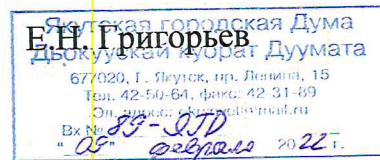 Якутская городская Дума
Е.Н. Григорьев
Дьокуускай куорат Дуумата
677020, г. Якутск, пр. Ленина, 15
Тел. 42-50-64, факс: 42-31-89
Эл. адрес:
Вх № 89-ЯГД
"09" февраля 2022 г.